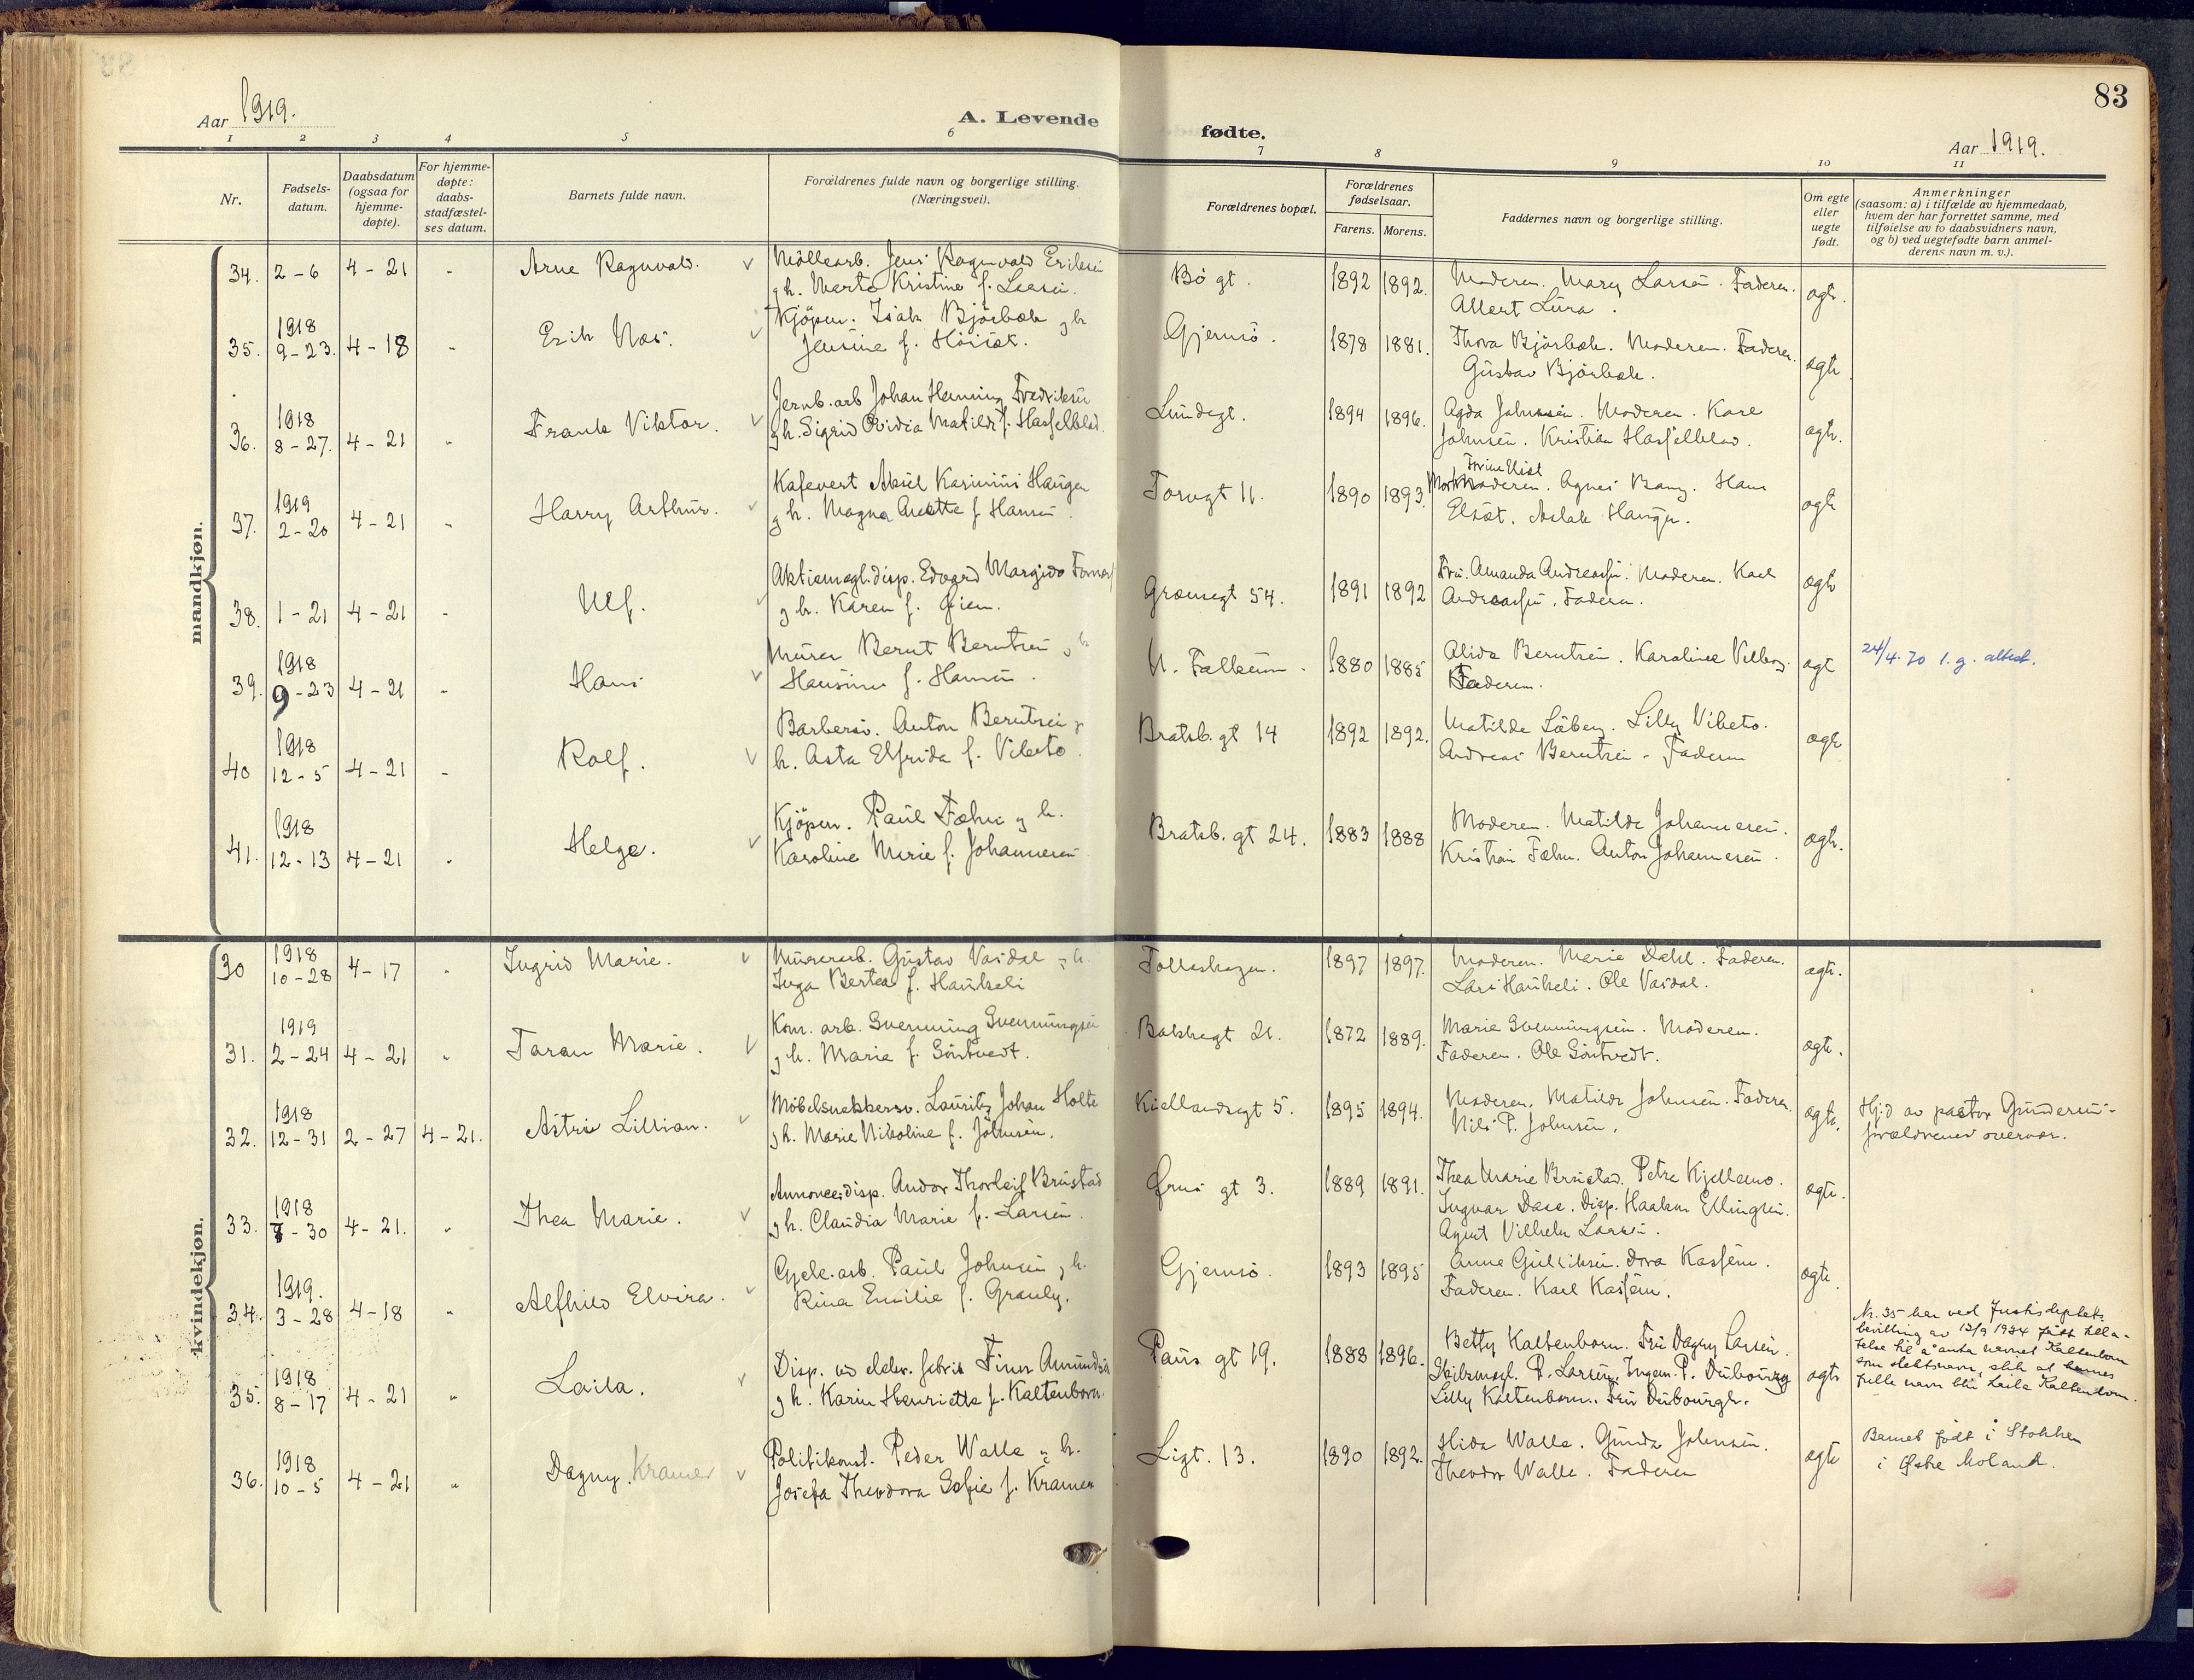 83
Aar 1919.
A. Levende fødte.
Aar 1919.
1 2 3 4 5 6 7 8 9 10 11
Nr.
Fødsels-
datum.
Daabsdatum
(ogsaa for
hjemme-
døpte).
For hjemme-
døpte:
daabs-
stadfæstel-
ses datum.
Barnets fulde navn.
Forældrenes fulde navn og borgerlige stilling.
(Næringsvei).
Forældrenes bopæl.
Forældrenes
fødselsaar.
Farens. Morens.
Faddernes navn og borgerlige stilling.
Om egte
eller
uegte
født.
Anmerkninger
(saasom: a) i tilfælde av hjemmedaab,
hvem der har forrettet samme, med
tilføielse av to daabsvidners navn,
og b) ved uegtefødte barn anmel-
derens navn m. v.).
mandkjøn.
34. 2-6 4-21 " Arne Ragnvald. Møllearb. Jens Ragnvald Eriksen
g h. Marta Kristine f. Larsen.
Bøgt. 1892 1892. Moderen. Mary Larsen. Faderen.
Albert Lura. egte.
35. 1918
9-23. 4-18 " Erik Nes. Kjøpm. Isak Bjørbæk g h
Jensine f. Høisæt.
Gjemsø. 1878 1881. Thora Bjørbæk. Moderen. Faderen.
Gustav Bjørbæk. egte
36. 1918
8-27. 4-21 " Frank Viktor. Jernb.arb Johan Henning Fredriksen
g h. Sigrid Ovidia Matilde f. Hasselblad.
Lundegt. 1894 1896. Agda Johnsen. Moderen. Karl
Johnsen. Kristian Hasselblad. egte.
37. 1919
2-20 4-21 " Harry Arthur. Kafevert Aksel Kasinius Haugen
g h. Magna Anette f Hansen.
Torvgt 11. 1890 1893. Moderen. Agnes Bang. Hans
Elsæt. Aslak Haugen. egte
38. 1-21 4-21 " Ulf. Aktiemegl.disp. Edvard Margido
g h. Karen f. Øien.
Grønsegt 54. 1891 1892 Fru. Amanda Andreassen. Moderen. Karl
Andreassen. Faderen. egte
39. 1918
9-23 4-21 " Hans Murer Bernt Berntsen g h
Hansine f. Hansen.
N. Falkum. 1880 1885 Alida Berntsen. Karoline Velberg.
Faderen. egte 24/4.70 l. g. attest.
40 1918
12-5 4-21 " Rolf. Barbersv. Anton Berntsen g
h. Asta Elfrida f. Vibeto.
Bratsb.gt 14 1892 1892. Matilde Løberg. Lilly Vibeto.
Andreas Berntsen - Faderen egte
41. 1918
12-13 4-21 " Helge. Kjøpm. Paul Fæhn g h.
Karoline Marie f. Johannesen
Bratsb.gt 24. 1883 1888 Moderen. Matilde Johannesen.
Kristian Fæhn. Anton Johannesen. egte.
kvindekjøn.
30 1918
10-28 4-17 " Ingrid Marie. Murerarb. Gustav Vasdal g h.
Inga Bertea f. Haukeli
Folleshagen. 1897 1897. Moderen. Marie Dahl. Faderen.
Lars Haukeli. Ole Vasdal. egte.
31. 1919
2-24 4-21 " Taran Marie. Kom. arb. Svenning Svenningsen
g h. Maria f. Søntvedt.
Bakkegt 21. 1872 1889. Marie Svenningsen. Moderen.
Faderen. Ole Søntvedt. egte.
32. 1918
12-31 2-27 4-21. Astrid Lillian. Møbelsnekkersv. Lauritz Johan Holte
g h. Marie Nikoline f. Johnsen.
Kiellandsgt 5. 1895 1894. Moderen. Matilde Johnsen. Faderen
Nils P. Johnsen. egte. Hj.d av pastor Gundersen -
forældrenes overvær.
33. 1918
7-30 4-21. " Thea Marie. Annoncedisp. Andor Thorleif Brustad
g h. Claudia Marie f. Larsen.
Ørns gt 3. 1889 1891. Thea Marie Brustad. Petra Kjellemo.
Ingvar Dase. Disp. Haakon Ellingsen.
Agent Vilhelm Larsen. egte.
34. 1919.
3-28 4-18 " Alfhild Elvira. Cycle.arb. Paul Johnsen g h.
Rina Emilie f. Granly.
Gjemsø. 1893 1895 Anne Gulliksen. Dora Kassem.
Faderen. Karl Kassem. egte.
35. 1918
8-17 4-21 " Laila. Disp. ved elektr. fabrik Finn Amundsen
g h. Karin Henriette f. Kaltenborn.
Paus gt 19. 1888 1896. Betty Kaltenborn. Fru Dagny Larsen.
Skibsmegl. P. Larsen. Ingen. P. Dubourg
Lilly Kaltenborn. Fru Dubourgh. egte Nr. 35 har ved Justisdeptets
bevilling av 13/9 1934 fått tilla-
telse til å anta navnet Kaltenborn
som slektsnavn, slik at hennes
fulle navn blir Laila Kaltenborn.
36. 1918
10-5 4-21 " Dagny. Kramer Politikonst. Peder Walle g h.
Josefa Theodora Sofie f. Kramer
Ligt. 13. 1890 1892. Hilda Walle. Gunda Johnsen.
Theodor Walle. Faderen egte Barnet født i Stokken
i Østre Moland.